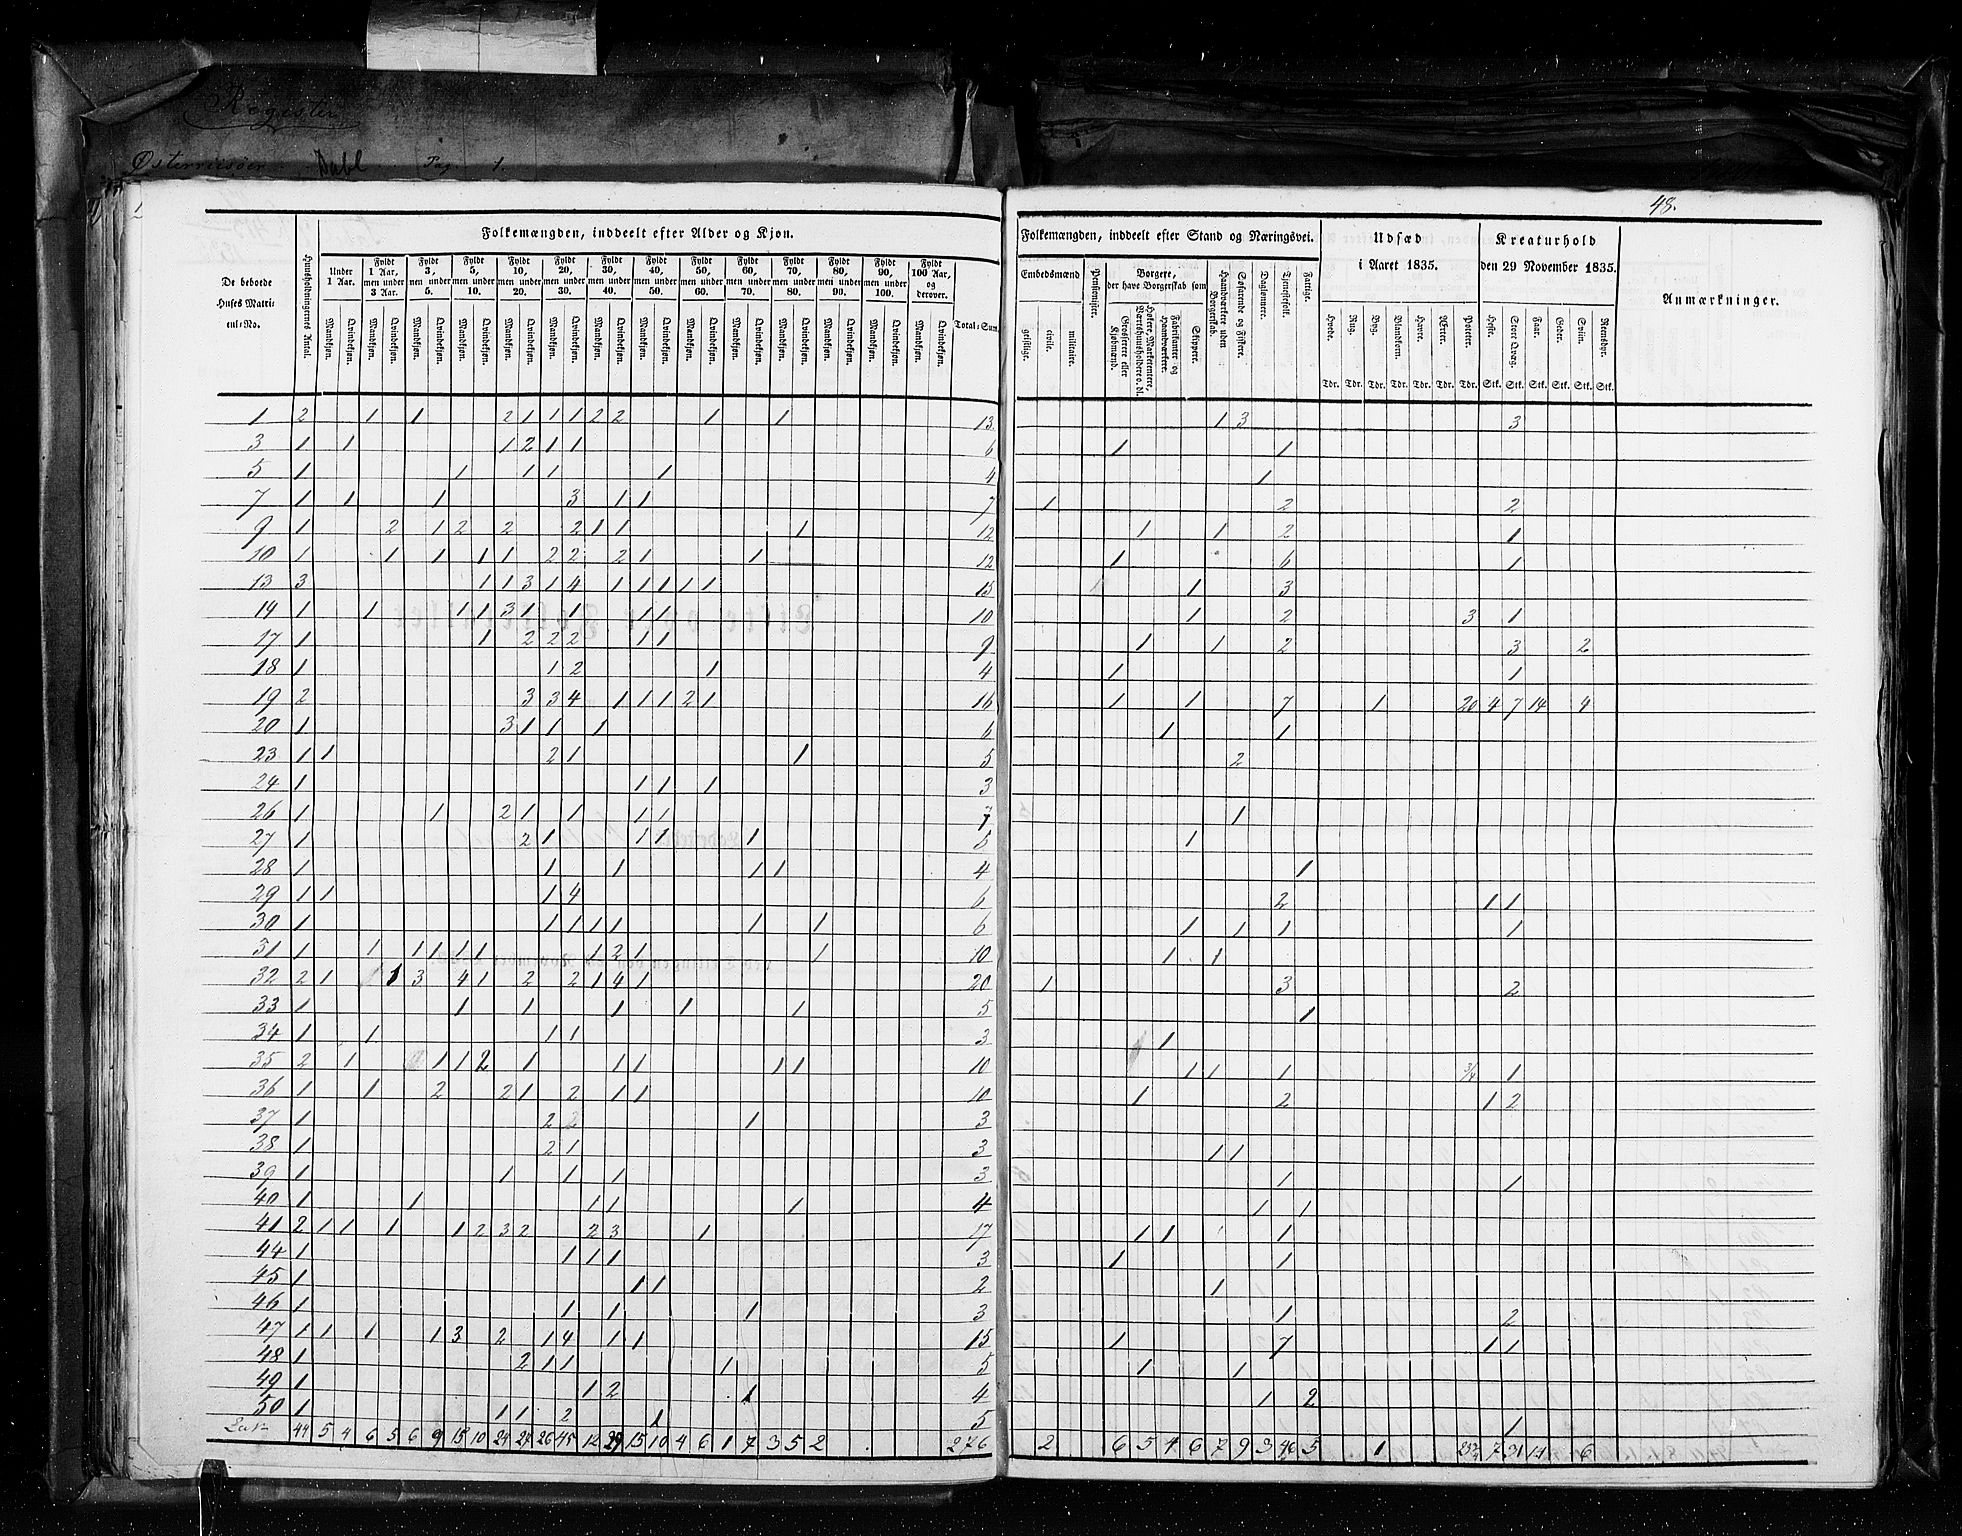 Register
Østerriisøer Dahl Pag 1.
48.
Folkemængden, inddeelt efter Alder og Kjøn.
Folkemængden, inddeelt efter Stand og Næringsvei.
Udsæd i Aaret 1835.
Kreaturhold den 29 November 1835.
Anmærkninger.
De beboede Huses Matricul-No.
Huusholdningernes Antal.
Under 1 Aar.
Fyldt 1 Aar, men under 3 Aar.
Fyldt 3, men under 5.
Fyldt 5, men under 10.
Fyldt 10, men under 20.
Fyldt 20, men under 30.
Fyldt 30, men under 40.
Fyldt 40, men under 50.
Fyldt 50, men under 60.
Fyldt 60, men under 70.
Fyldt 70, men under 80.
Fyldt 80, men under 90.
Fyldt 90, men under 100.
Fyldt 100 Aar, og derover.
Total-Sum.
Mandkjøn. Qvindekjøn. Mandkjøn. Qvindekjøn. Mandkjøn. Qvindekjøn. Mandkjøn. Qvindekjøn. Mandkjøn. Qvindekjøn. Mandkjøn. Qvindekjøn. Mandkjøn. Qvindekjøn. Mandkjøn. Qvindekjøn. Mandkjøn. Qvindekjøn. Mandkjøn. Qvindekjøn. Mandkjøn. Qvindekjøn. Mandkjøn. Qvindekjøn. Mandkjøn. Qvindekjøn. Mandkjøn. Qvindekjøn.
Embedsmænd
geistlige. civile. militaire.
Pensionister.
Borgere, der have Borgerskab som
Grosserere eller Kjøbmænd.
Høkere, Marketentere, Værtshuusholdere o. dl.
Fabrikanter og Haandværkere.
Skippere.
Haandværkere uden Borgerskab.
Søfarende og Fiskere.
Daglønnere.
Tjenestefolk.
Fattige.
Hvede. Rug. Byg. Blandkorn. Havre. Ærter. Poteter.
Tdr. Tdr. Tdr. Tdr. Tdr. Tdr. Tdr.
Heste. Stort Qvæg. Faar. Geder. Sviin. Reensdyr.
Stk. Stk. Stk. Stk. Stk. Stk.
1 2 1 1 2 1 1 1 2 2 1 1 13 1 3 3
3 1 1 1 2 1 1 6 1 1
5 1 1 1 1 1 4 1
7 1 1 1 3 1 1 7 1 2 2
9 1 2 1 2 2 2 1 1 1 12 1 1 2 1
10 1 1 1 1 1 2 2 2 1 1 12 1 6 1
13 3 1 1 3 1 4 1 1 1 1 1 15 1 3
14 1 1 1 1 3 1 1 1 1 10 1 2 3 1
17 1 1 2 2 2 1 1 9 1 1 2 3 2
18 1 1 2 1 4 1 1
19 2 3 3 4 1 1 1 2 1 16 1 1 7 1 20 4 7 14 4
20 1 3 1 1 1 6 1 1
23 1 1 2 1 1 5 2
24 1 1 1 1 3
26 1 1 2 1 1 1 1 7 1
27 1 2 1 1 1 1 5 1
28 1 1 1 1 1 4 1
29 1 1 1 4 6 2 1 1
30 1 1 1 1 1 1 1 6 1 1 1 1
31 1 1 1 1 1 1 1 2 1 1 10 1 1
32 2 1 1 3 4 1 2 2 1 4 1 20 1 3 2
33 1 1 1 1 1 1 5 1
34 1 1 1 1 3 1
35 2 1 1 1 2 1 1 1 1 1 10 1 1 1 3/4 1
36 1 1 2 2 1 2 1 1 10 1 2 1 2
37 1 2 2 1 3
38 1 2 1 3 1 1
39 1 1 1 1 3 1 1
40 1 1 1 1 1 4 1 1
41 2 1 1 1 1 2 3 2 2 3 1 17 1 1 1
44 1 1 1 1 3 1 1
45 1 1 1 2 1
46 1 1 1 1 3 1 2
47 1 1 1 1 3 2 1 4 1 1 15 1 7 1 1
48 1 2 1 1 1 5 1 1
49 1 1 2 1 4 1 2
50 1 1 1 2 1 5 1
44 5 4 6 5 6 9 15 10 24 24 26 45 12 29 15 10 4 6 1 7 3 5 2 276 2 6 5 4 6 7 9 3 46 5 1 23 3/4 7 31 14 6